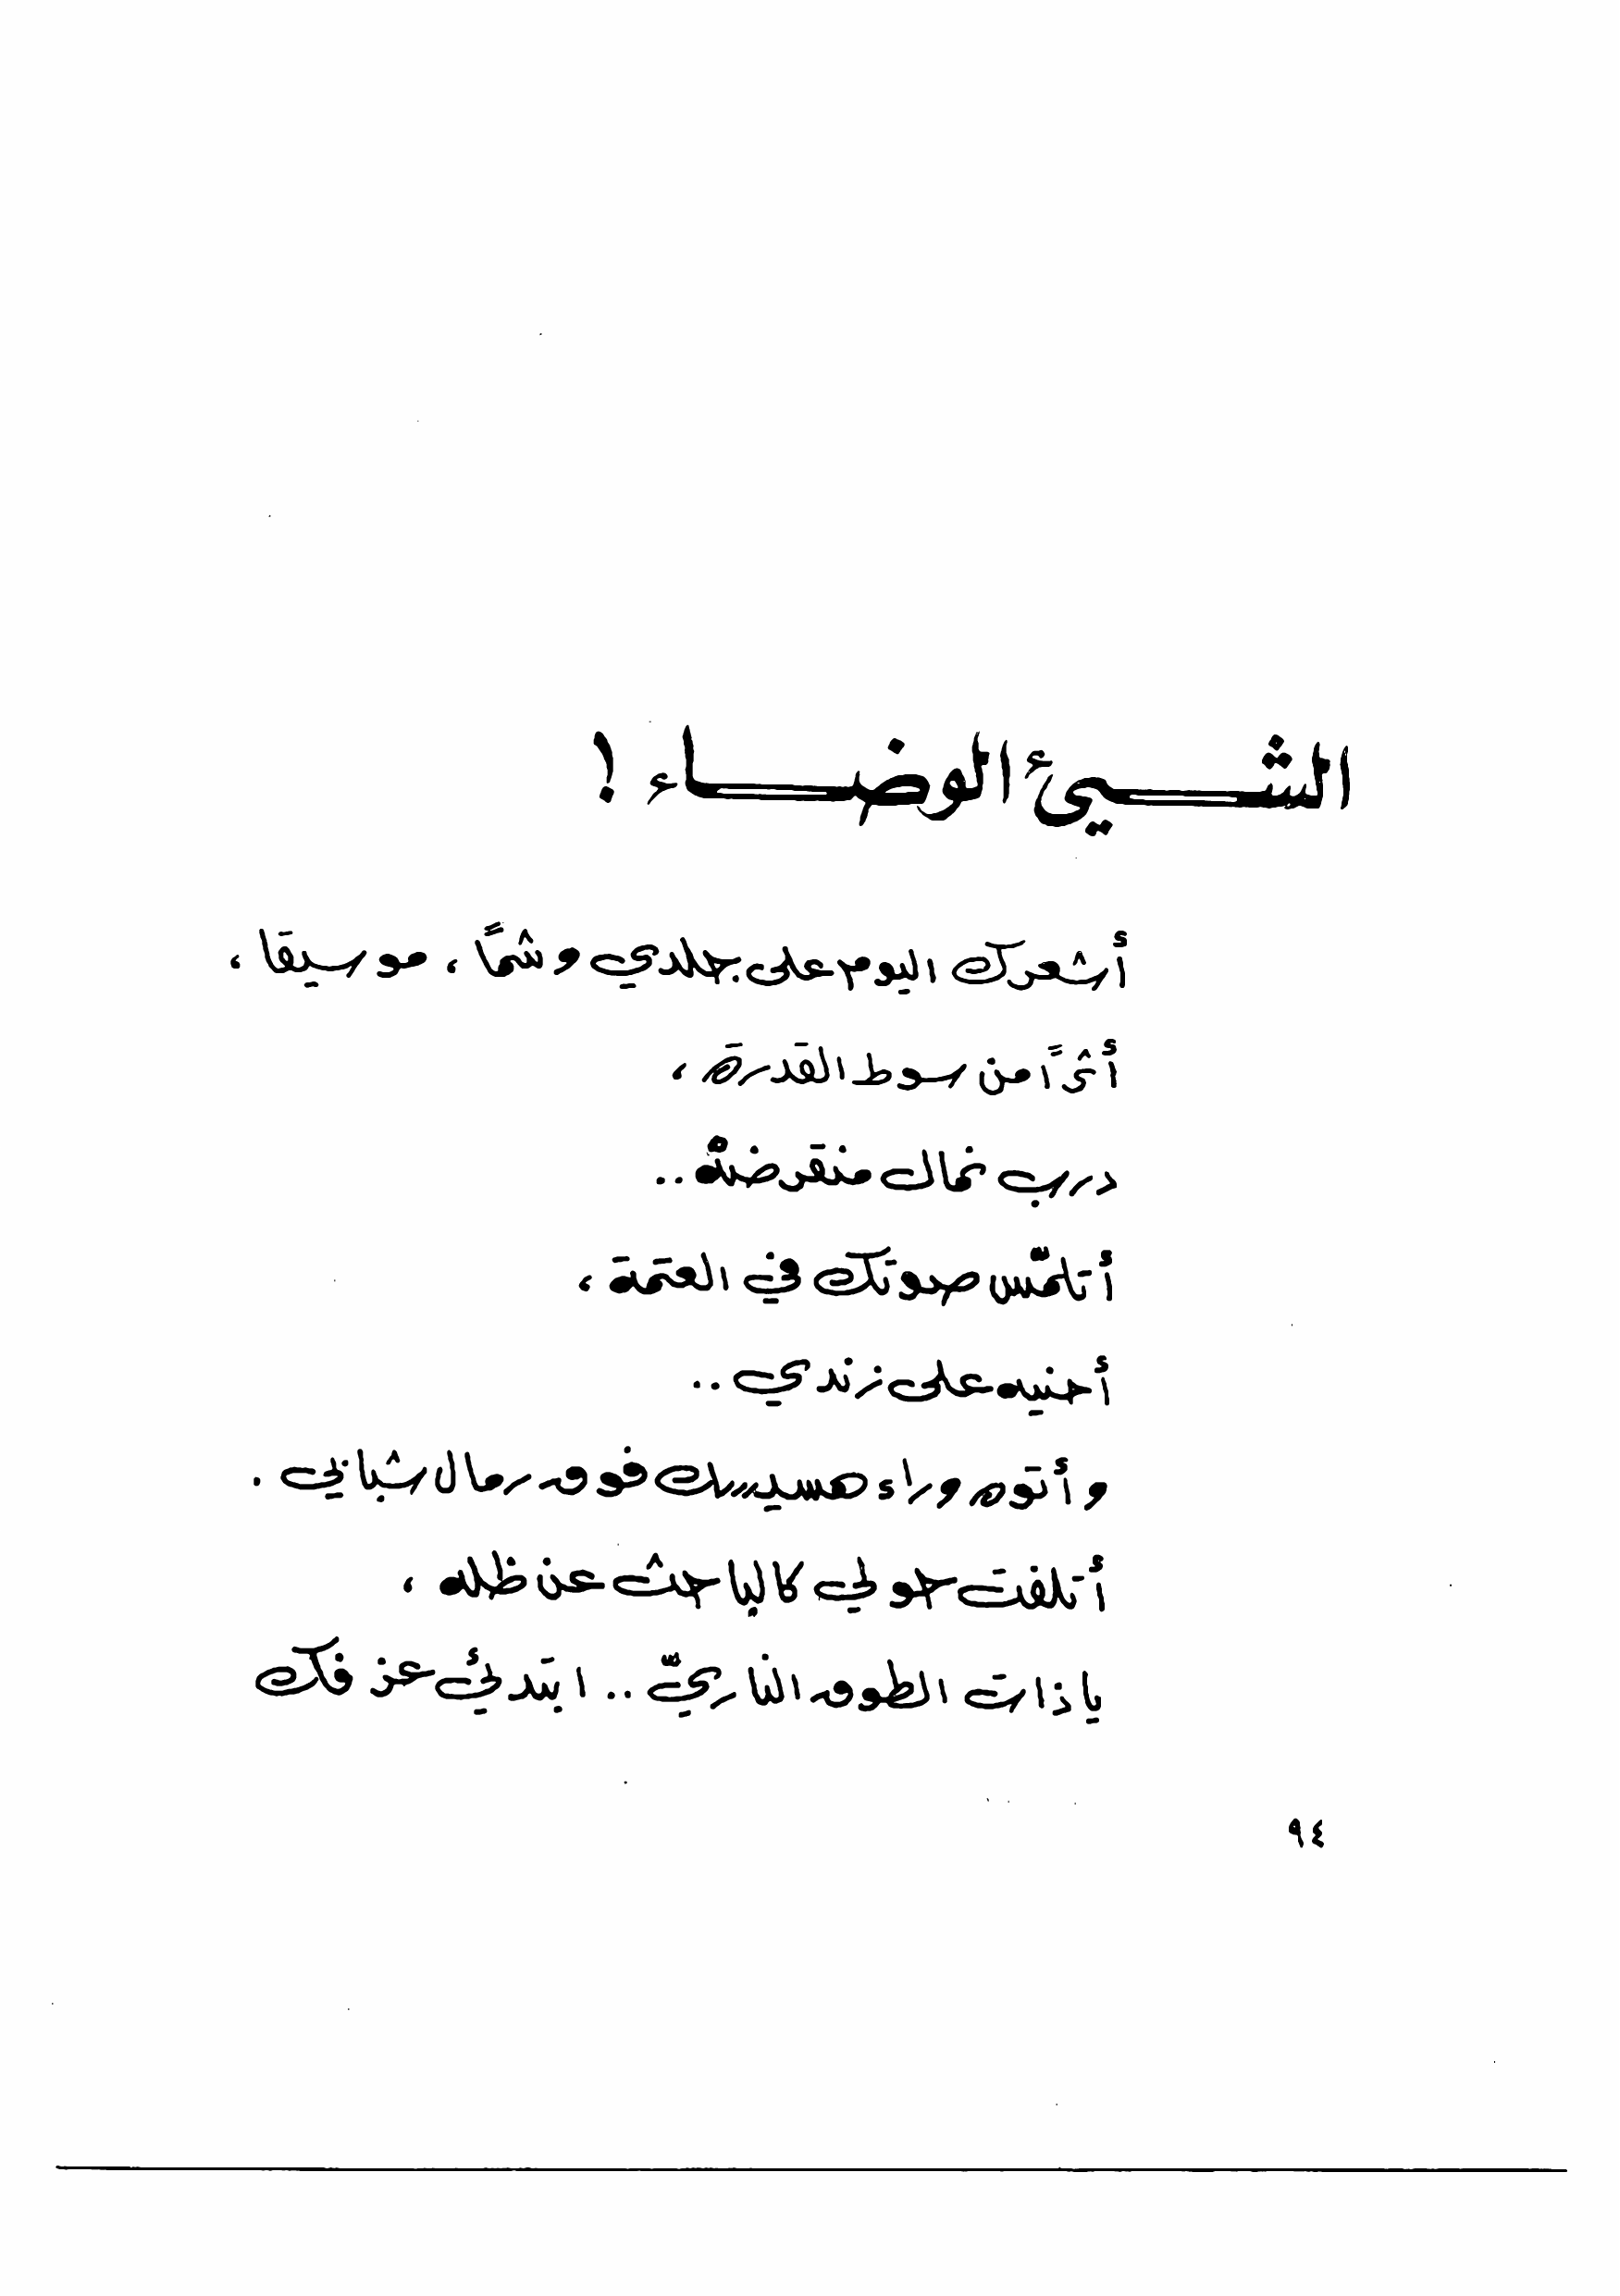 الشيئ الوضاء !
أشعرك اليوم على جلدي وشماً ، موسيقا ،
أثراً من سوط القدرة ،
درب نمال منقرضة ..
أتلمّس صوتك في العتمة ،
أحنيه على زندي ..
وأتوه وراء هسيسك فوق رمال شبابي .
أتلفت حولي كالباحث عن ظله ،
يا ذات الطوق الناريّ .. ابتدئ عزفك
٩٤